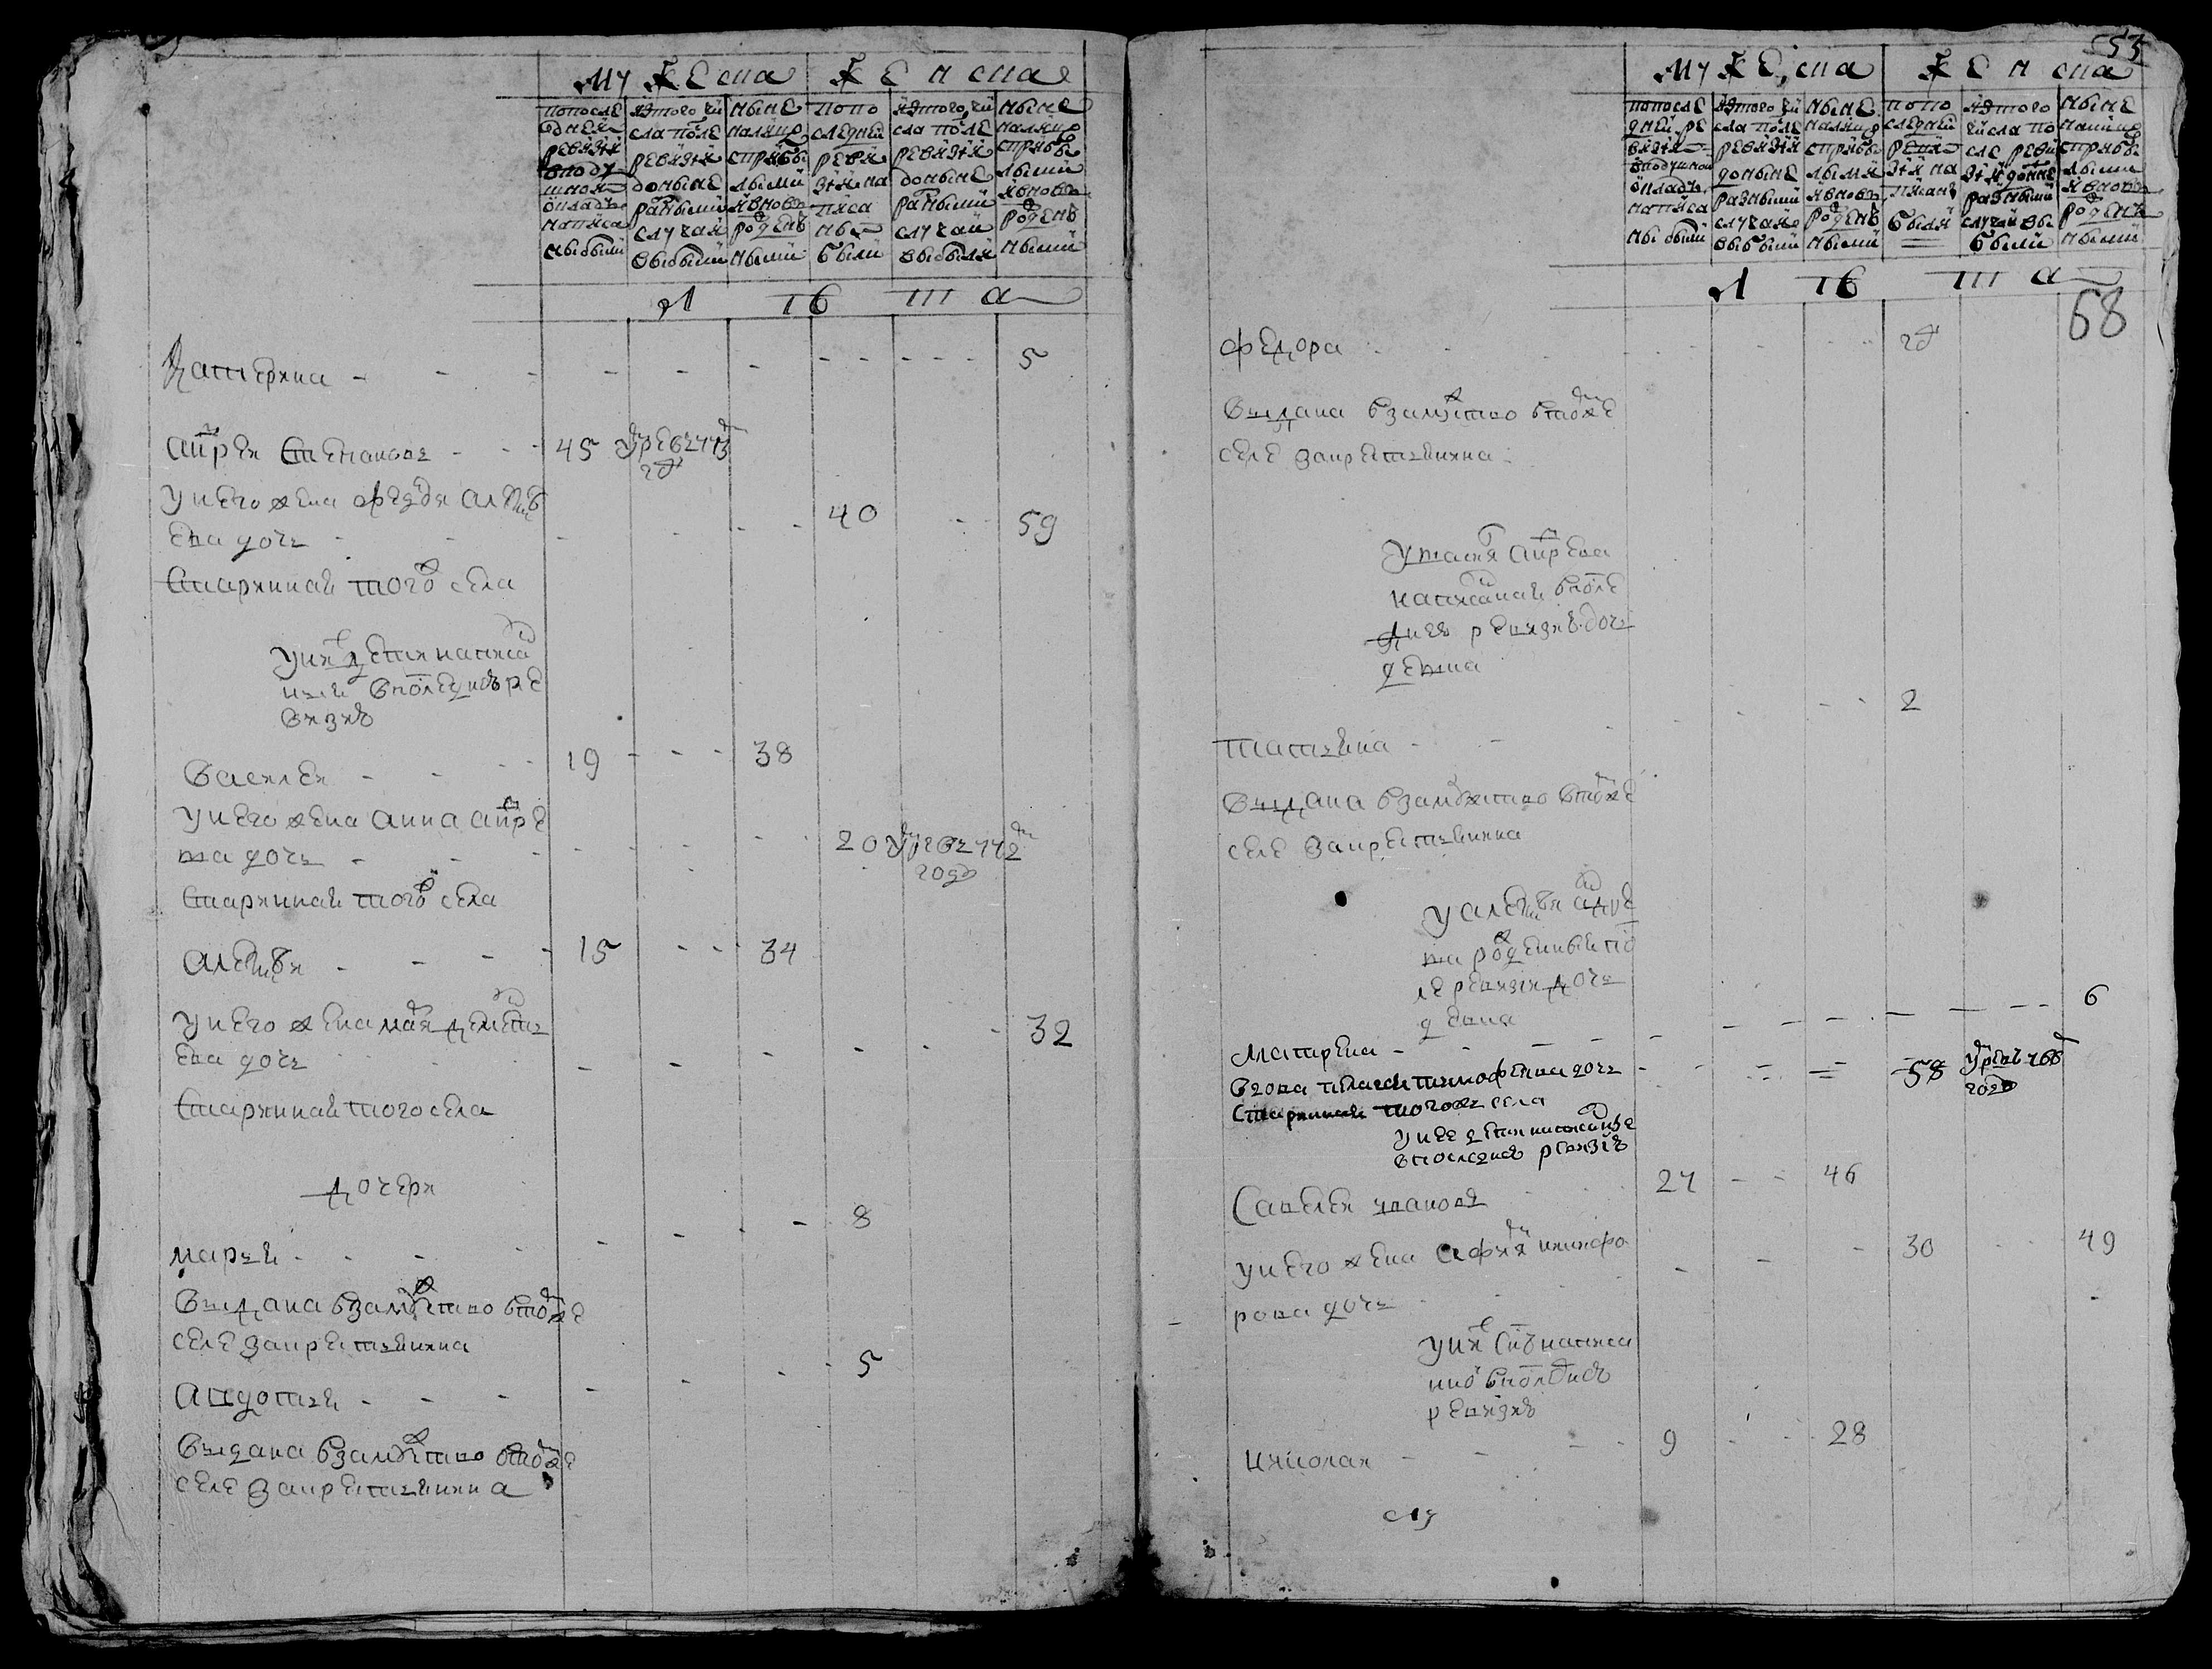 Мужеска Женска
попосле
дней
ревизии
вподу
шной
окладъ
написа
ны были
изтого чи
сла после
ревизии
доныне
разными
случаи
выбыли
ныне
налицо
сприбы
лыми
ивновь
рожден
ными
попо
следней
реви
зии на
писа
ны
были
изтого чи
сла после
ревизии
доныне
разными
случаи
выбыли
ныне
налицо
сприбы
лыми
ивновь
рожден
ными
Л ѣ т а
Катерина - - - - - - - - 5
Андрей Степановъ - - 45 умре в 1773
году
у него жена Федосья Алексѣ
ева дочь - - 40 - 59
Старинная того ж села
у них дети написан
ныя впоследней ре
визии
Василей - - 19 - - - 38
у него жена Анна Андре
ева дочь - - 20 умре в 1772
году
Старинная того ж села
Алексѣй - - - 15 - - 34
у него жена Марья Дементь
ева дочь - - - 32
Старинная того села
дочери
Марья - - - - - 8
Выдана взамужство в том же
селе за крестьянина
Авдотья - - - - - 5
Выдана взамужство в том же
селе за крестьянина
53
Мужеска Женска
попосле
дней ре
визии
вподушной
окладъ
написа
ны были
изтого чи
сла после
ревизии
доныне
разными
случаи
выбыли
ныне
налицо
сприбы
лыми
ивновь
рожден
ными
попо
следней
реви
зии на
писаны
были
изтого
числа по
сле реви
зии доныне
разными
случаи вы
были
ныне
налицо
сприбы
лыми
ивновь
рожден
ными
Л ѣ т а
68
Федора - - - - - - год
Выдана взамужство в том же
селе за крестьянина
Андреева
написанная в после
дней ревизии дочь
девка
Татьяна - - - - - 2
Выдана взамужство в том же
селе за крестьянина
у Алексѣя Андре
ева рожденная по
сле ревизии дочь
девка
Матрена - - - - - - 6
Вдова Пелагея Тимофеева дочь - - - 58 умре в 766
году
Старинная того ж села
у нее дети написанные
в последней ревизии
Савелей Ивановъ 27 - - 46
у него жена Афимья Никифо
рова дочь - - - 30 - - 49
у них сын написан
ной в последней
ревизии
Николай - - - 9 - - 28